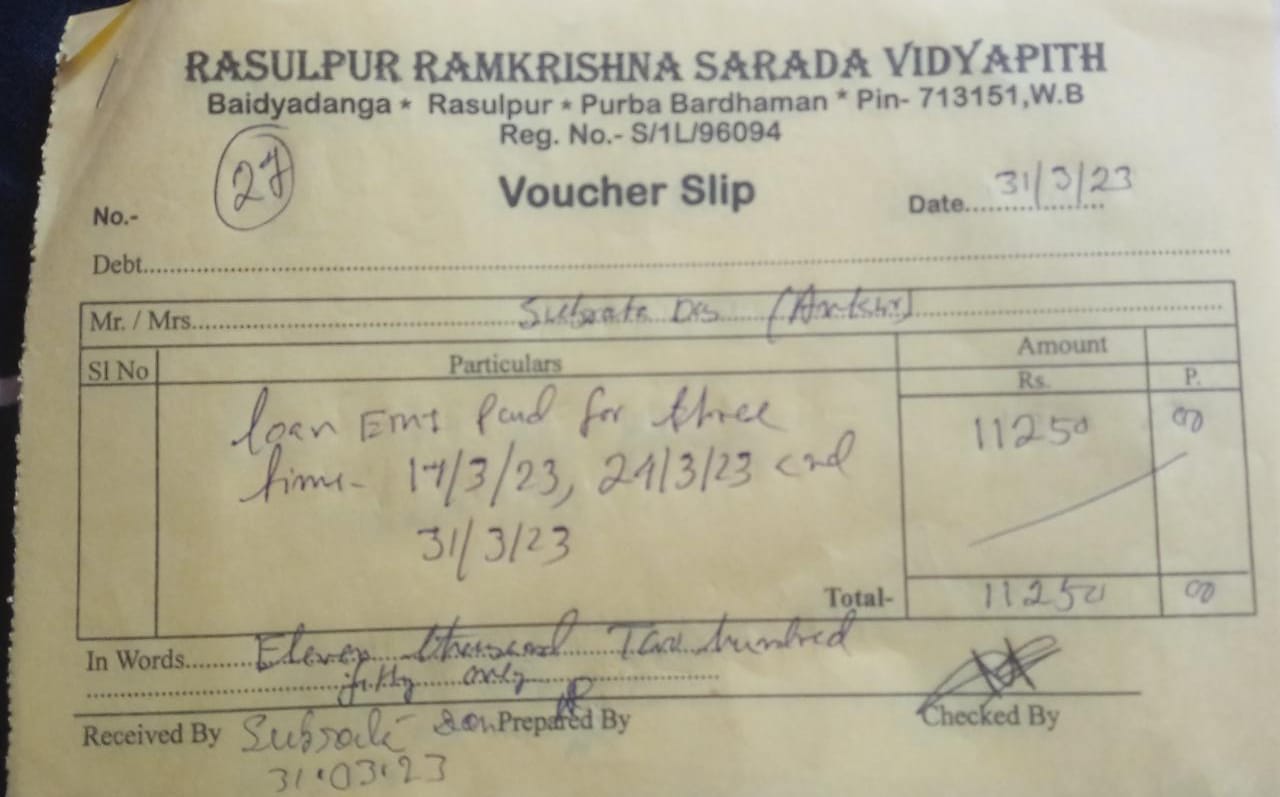 RASULPUR RAMKRISHNA SARADA VIDYAPITH
Baidyadanga * Rasulpur * Purba Bardhaman * Pin- 713151,W.B
Reg. No.- S/1L/96094
No.- 27
Voucher Slip
Date 31/3/23
Debt
Mr. / Mrs. Subrata Das
Sl No Particulars Amount
Rs. P.
loan EMI Paid for three 11250 00
time- 17/3/23, 24/3/23 and
31/3/23
Total- 11250 00
In Words Eleven thousand Two hundred
fifty only
Received By Prepared By Checked By
31.03.23